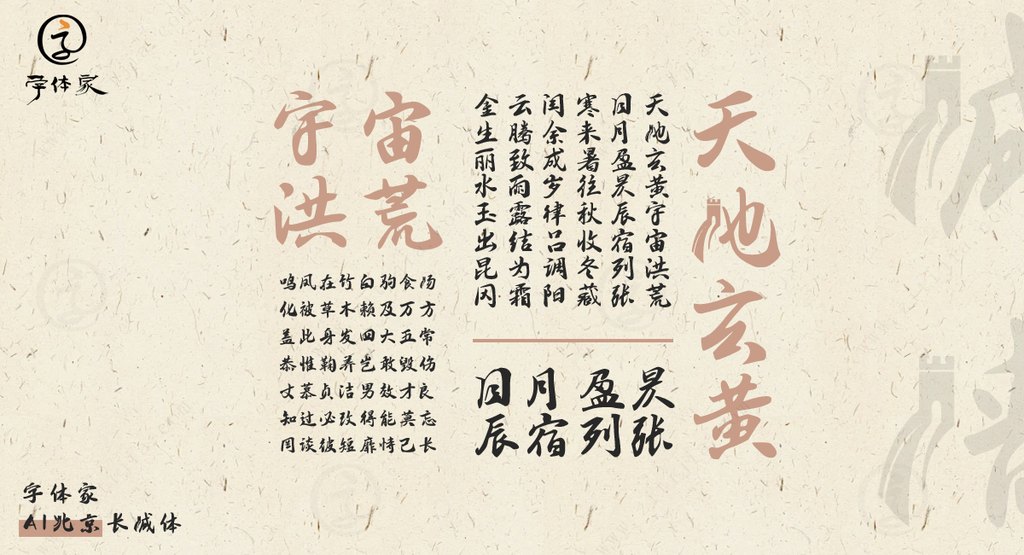 字
字体家
天地玄黄
天地玄黄宇宙洪荒
日月盈昃辰宿列张
寒来暑往秋收冬藏
闰余成岁律吕调阳
云腾致雨露结为霜
金生丽水玉出昆冈
日月盈昃
辰宿列张
宇宙
洪荒
鸣凤在竹白驹食场
化被草木赖及万方
盖此身发四大五常
恭惟鞠养岂敢毁伤
女慕贞洁男效才良
知过必改得能莫忘
罔谈彼短靡恃己长
字体家
AI北京长城体